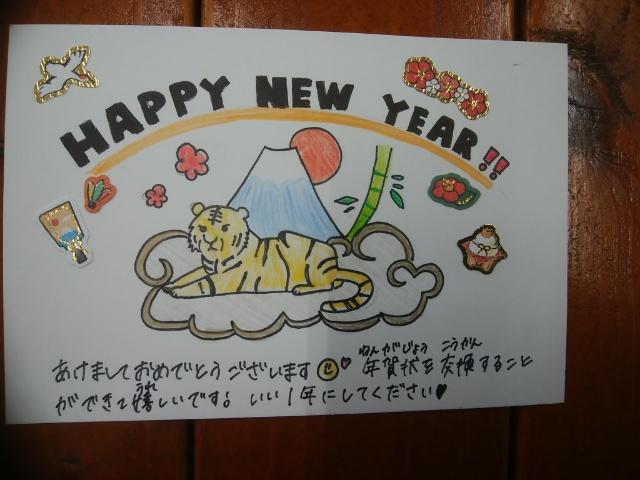 HAPPY NEW YEAR!!
あけましておめでとうございます 年賀状を交換すること
ねんがじょう こうかん
ができて嬉しいです! いい1年にしてください♥
うれ